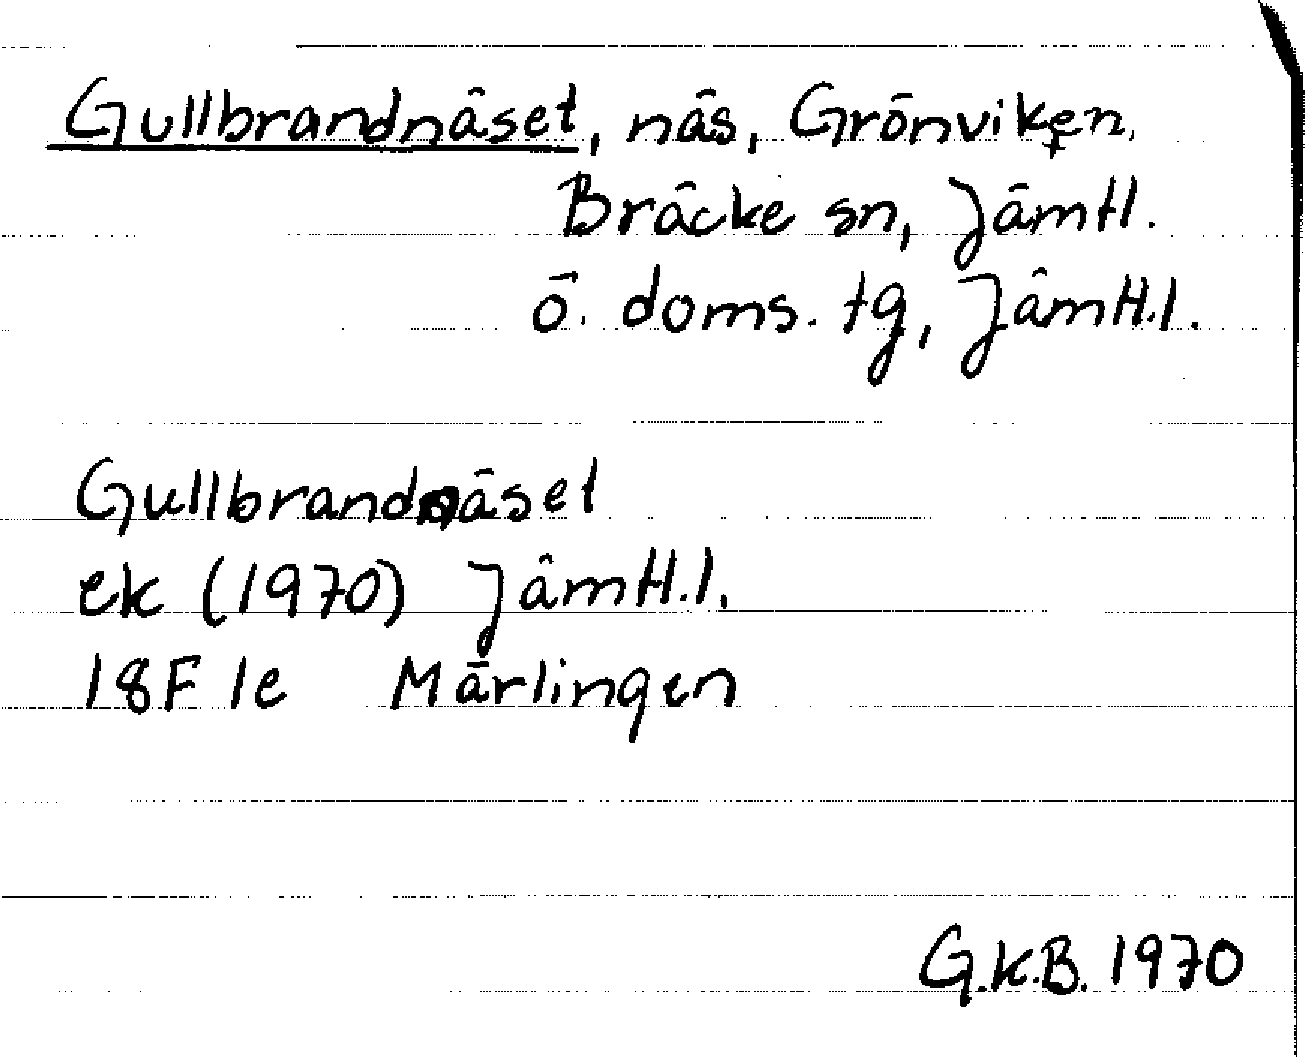 Gullbrandnäset, näs, Grönviken,
Bräcke sn, Jämtl.
ö. doms. tg, Jämtl.l.
Gullbrandnäset
ek (1970) Jämtl.l.
18F 1e Märlingen
G.K.B. 1970